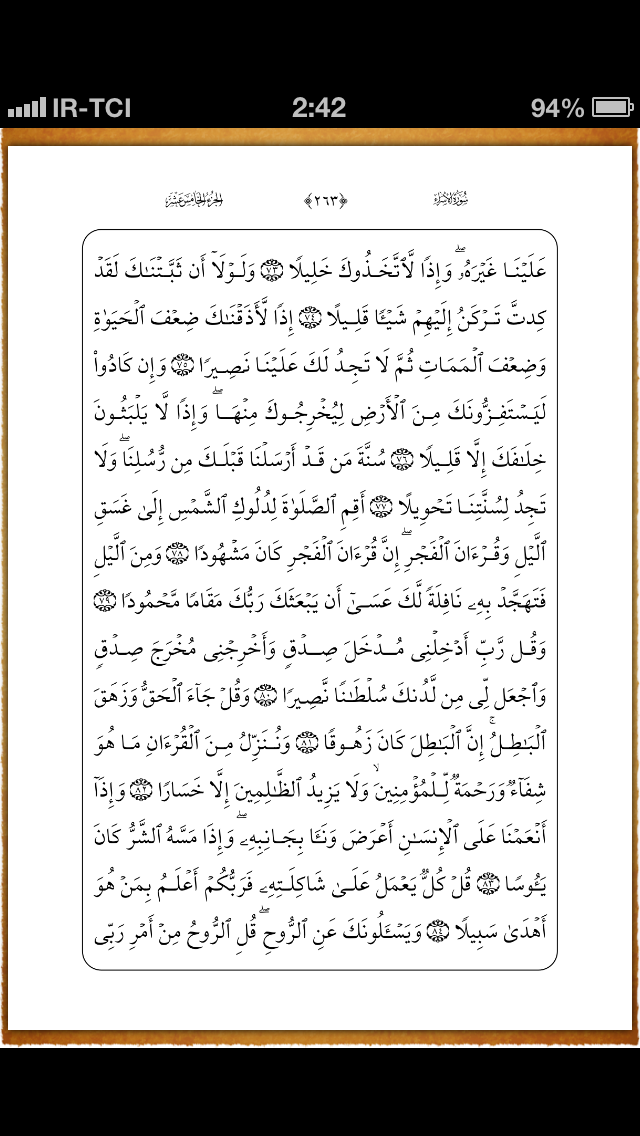 IR-TCI 2:42 94%
سُورَةُ الإِسْرَاءِ ﴿٢٦٣﴾ الجُزْءُ الخَامِسَ عَشَرَ
عَلَيۡنَا غَيۡرَهُۥۖ وَإِذٗا لَّٱتَّخَذُوكَ خَلِيلٗا ٧٣ وَلَوۡلَآ أَن ثَبَّتۡنَٰكَ لَقَدۡ
كِدتَّ تَرۡكَنُ إِلَيۡهِمۡ شَيۡـٔٗا قَلِيلًا ٧٤ إِذٗا لَّأَذَقۡنَٰكَ ضِعۡفَ ٱلۡحَيَوٰةِ
وَضِعۡفَ ٱلۡمَمَاتِ ثُمَّ لَا تَجِدُ لَكَ عَلَيۡنَا نَصِيرٗا ٧٥ وَإِن كَادُواْ
لَيَسۡتَفِزُّونَكَ مِنَ ٱلۡأَرۡضِ لِيُخۡرِجُوكَ مِنۡهَاۖ وَإِذٗا لَّا يَلۡبَثُونَ
خِلَٰفَكَ إِلَّا قَلِيلٗا ٧٦ سُنَّةَ مَن قَدۡ أَرۡسَلۡنَا قَبۡلَكَ مِن رُّسُلِنَاۖ وَلَا
تَجِدُ لِسُنَّتِنَا تَحۡوِيلًا ٧٧ أَقِمِ ٱلصَّلَوٰةَ لِدُلُوكِ ٱلشَّمۡسِ إِلَىٰ غَسَقِ
ٱلَّيۡلِ وَقُرۡءَانَ ٱلۡفَجۡرِۖ إِنَّ قُرۡءَانَ ٱلۡفَجۡرِ كَانَ مَشۡهُودٗا ٧٨ وَمِنَ ٱلَّيۡلِ
فَتَهَجَّدۡ بِهِۦ نَافِلَةٗ لَّكَ عَسَىٰٓ أَن يَبۡعَثَكَ رَبُّكَ مَقَامٗا مَّحۡمُودٗا ٧٩
وَقُل رَّبِّ أَدۡخِلۡنِي مُدۡخَلَ صِدۡقٖ وَأَخۡرِجۡنِي مُخۡرَجَ صِدۡقٖ
وَٱجۡعَل لِّي مِن لَّدُنكَ سُلۡطَٰنٗا نَّصِيرٗا ٨٠ وَقُلۡ جَآءَ ٱلۡحَقُّ وَزَهَقَ
ٱلۡبَٰطِلُۚ إِنَّ ٱلۡبَٰطِلَ كَانَ زَهُوقٗا ٨١ وَنُنَزِّلُ مِنَ ٱلۡقُرۡءَانِ مَا هُوَ
شِفَآءٞ وَرَحۡمَةٞ لِّلۡمُؤۡمِنِينَۙ وَلَا يَزِيدُ ٱلظَّٰلِمِينَ إِلَّا خَسَارٗا ٨٢ وَإِذَآ
أَنۡعَمۡنَا عَلَى ٱلۡإِنسَٰنِ أَعۡرَضَ وَنَـَٔا بِجَانِبِهِۦۖ وَإِذَا مَسَّهُ ٱلشَّرُّ كَانَ
يَـُٔوسٗا ٨٣ قُلۡ كُلّٞ يَعۡمَلُ عَلَىٰ شَاكِلَتِهِۦ فَرَبُّكُمۡ أَعۡلَمُ بِمَنۡ هُوَ
أَهۡدَىٰ سَبِيلٗا ٨٤ وَيَسۡـَٔلُونَكَ عَنِ ٱلرُّوحِۖ قُلِ ٱلرُّوحُ مِنۡ أَمۡرِ رَبِّي